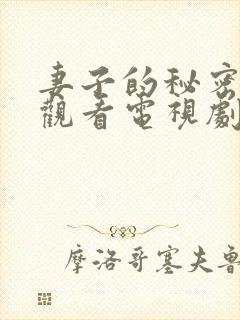 妻子的秘密
觀看電視劇
摩洛哥塞夫魯